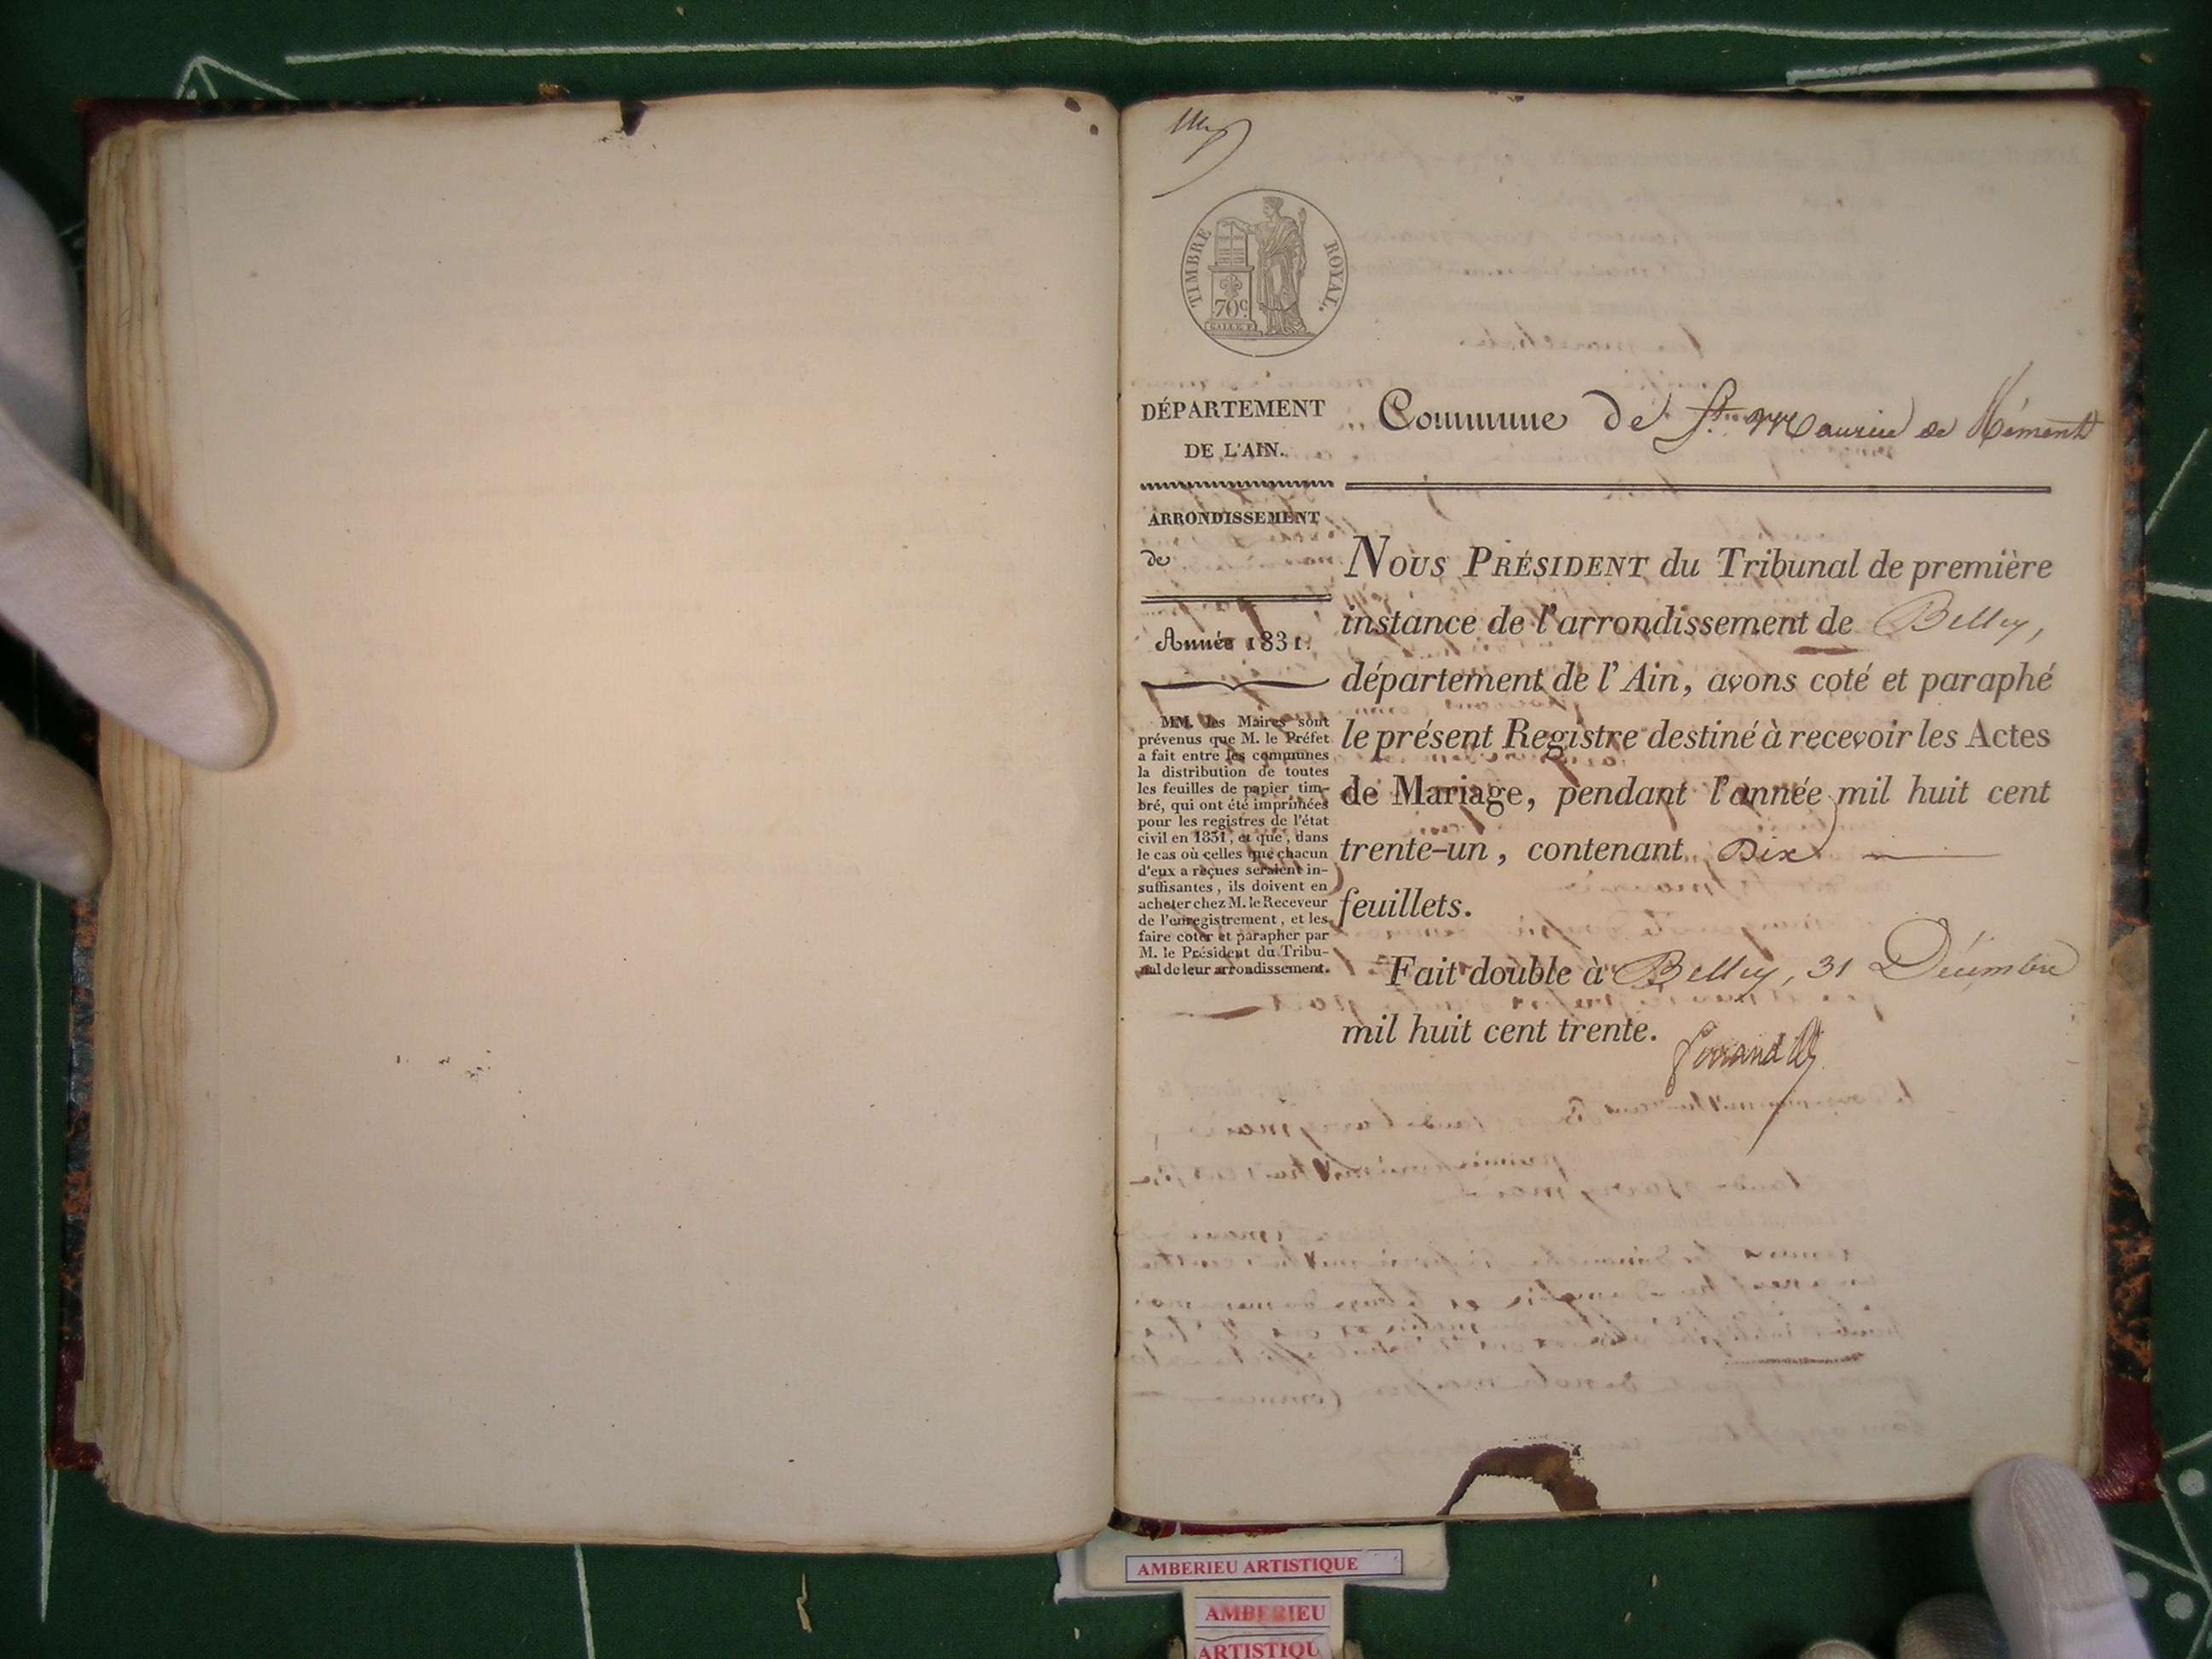 TIMBRE ROYAL.
70c
GALLE F.
DÉPARTEMENT
DE L'AIN.
Commune de St. Maurice de Rément
ARRONDISSEMENT
de
Année 1831.
MM. les Maires sont
prévenus que M. le Préfet
a fait entre les communes
la distribution de toutes
les feuilles de papier tim-
bré, qui ont été imprimées
pour les registres de l'état
civil en 1831, et que, dans
le cas où celles que chacun
d'eux a reçues seraient in-
suffisantes, ils doivent en
acheter chez M. le Receveur
de l'enregistrement, et les
faire coter et parapher par
M. le Président du Tribu-
nal de leur arrondissement.
NOUS PRÉSIDENT du Tribunal de première
instance de l'arrondissement de Belley,
département de l'Ain, avons coté et paraphé
le présent Registre destiné à recevoir les Actes
de Mariage, pendant l'année mil huit cent
trente-un, contenant Dix
feuillets.
Fait double à Belley, 31 Décembre
mil huit cent trente.
AMBERIEU ARTISTIQUE
AMBERIEU
ARTISTIQU